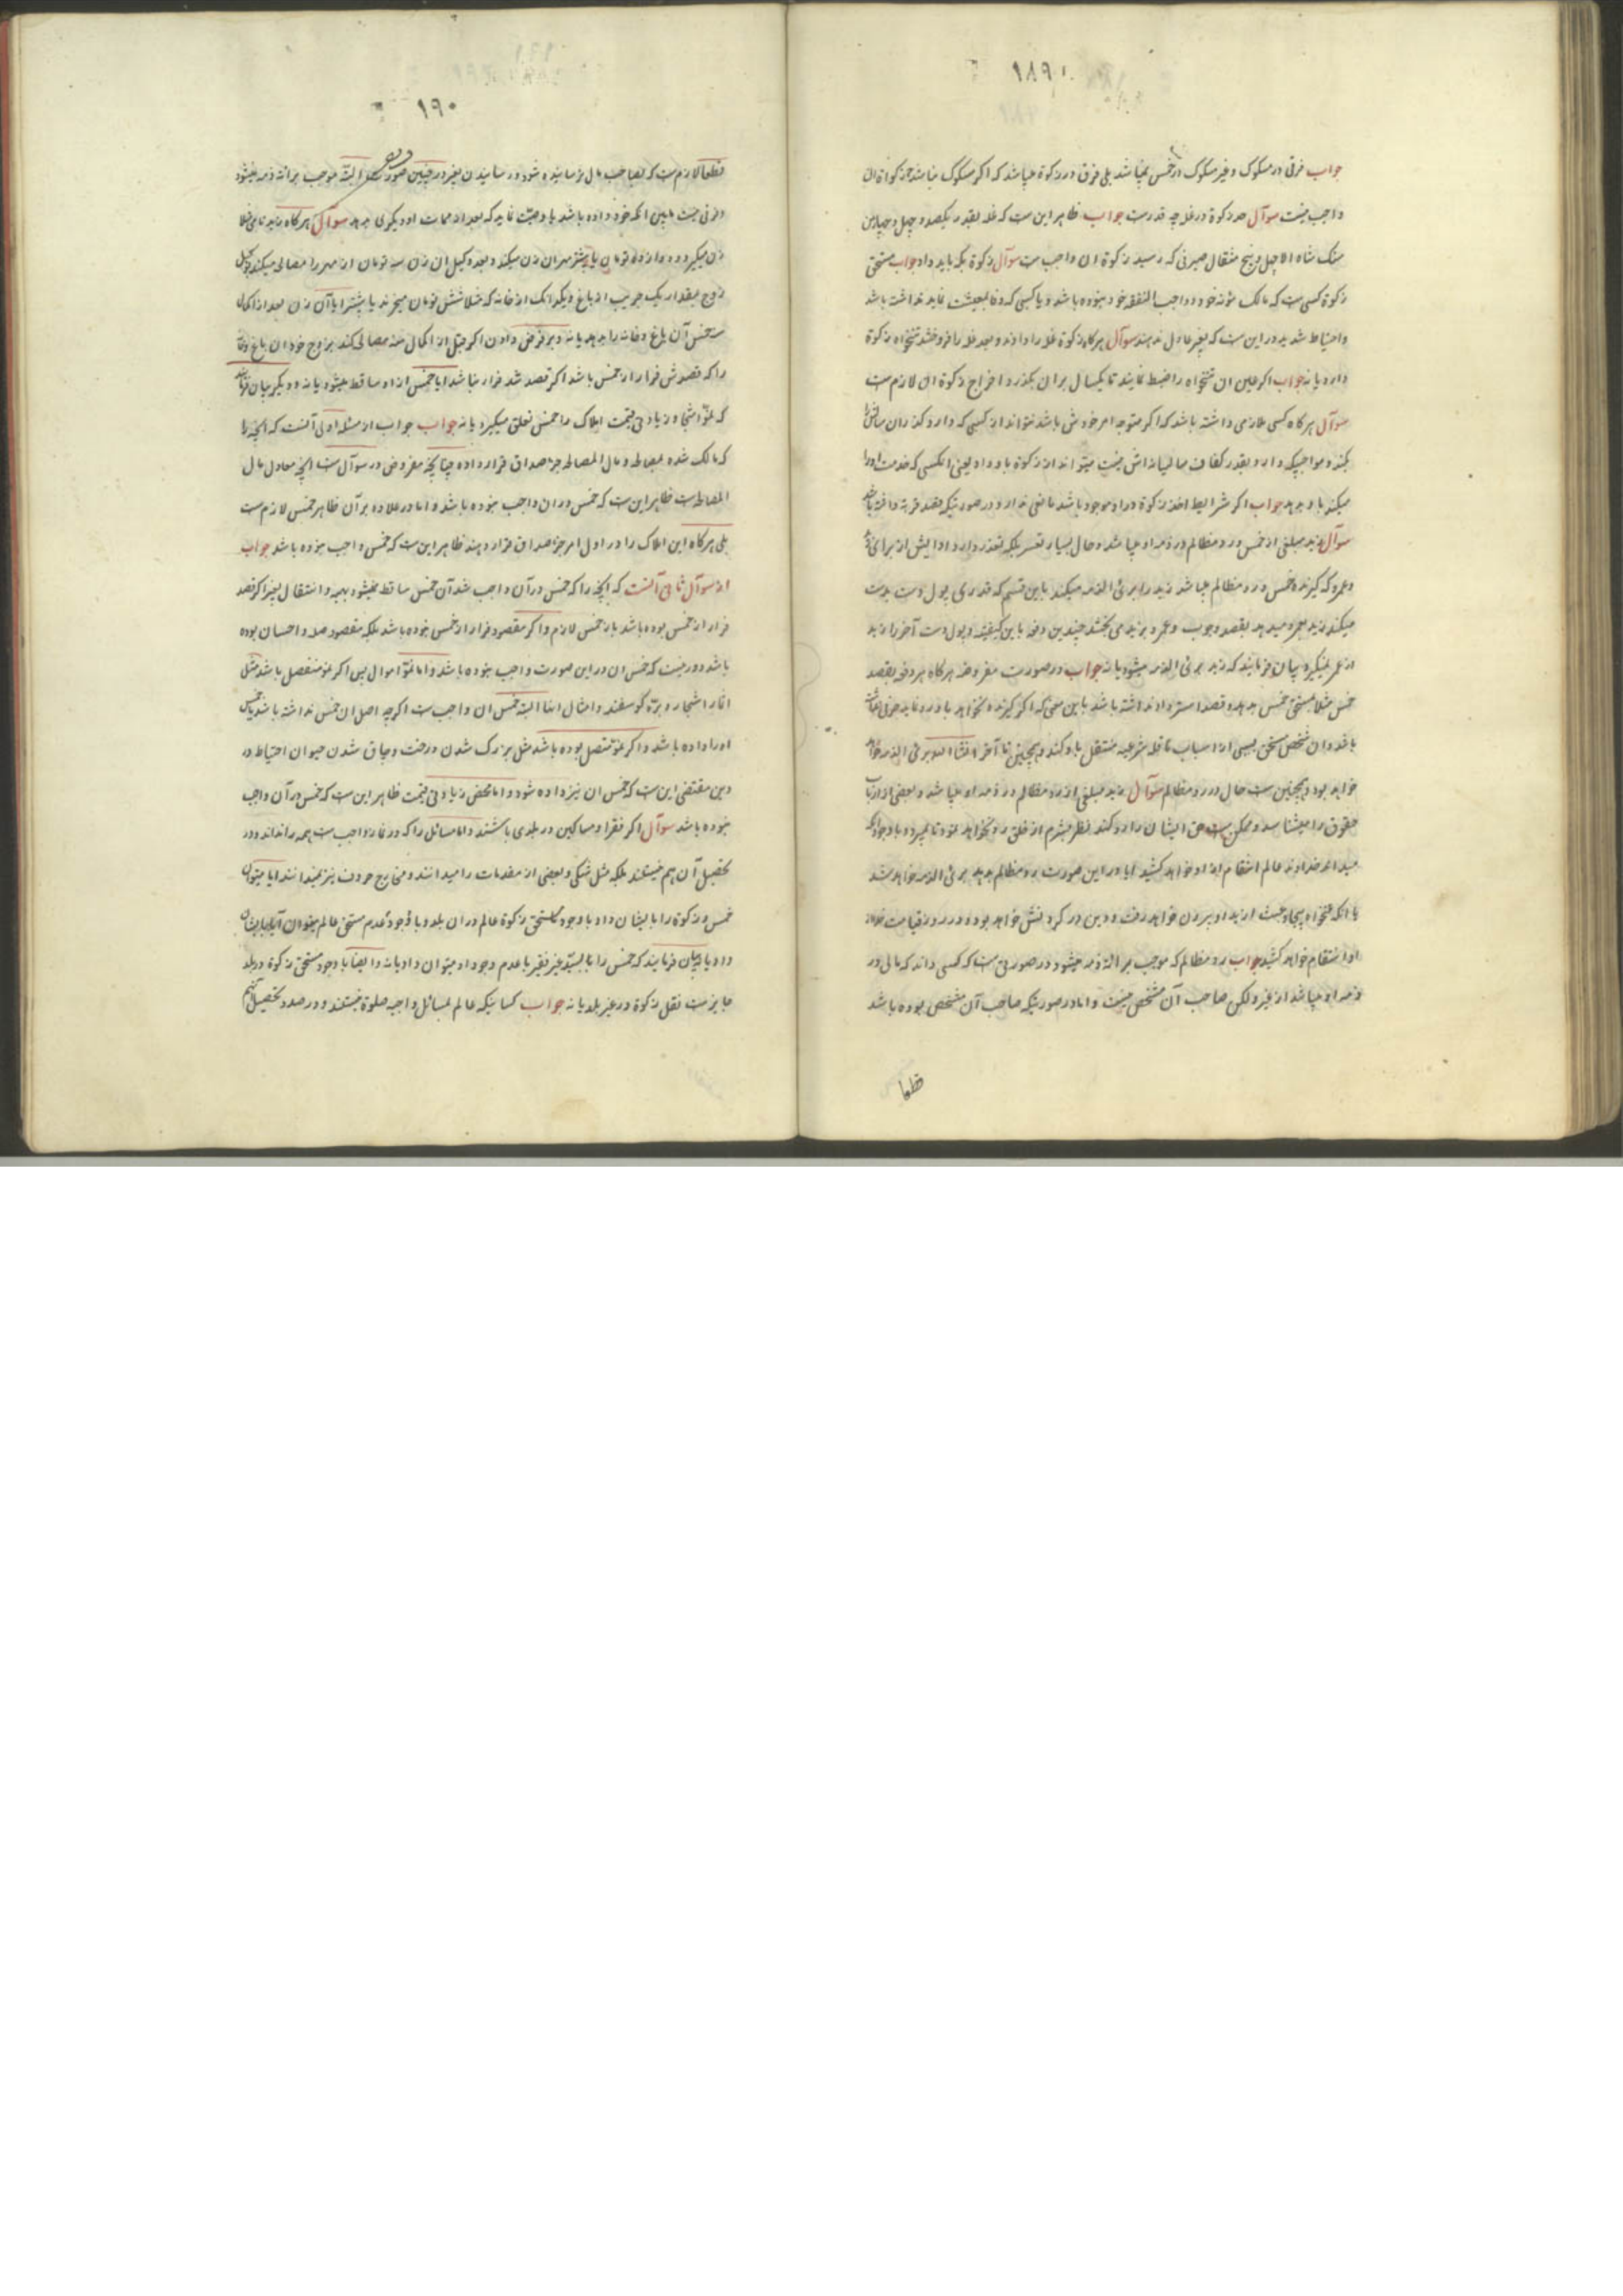 ۱۸۹
جواب فرقی در مسکوک و غیر مسکوک در خمس نمیباشد بلی فرق در زکوة میباشد که اگر مسکوک نباشد زکوة ان
واجب نیست سوآل حد زکوة در غله چه قدرست جواب ظاهر این ست که غله بقدر یکصد و چهل و چهار من
سنک شاه الا چهل و پنج مثقال صیرفی که رسید زکوة ان واجب ست سوآل زکوة بکه باید داد جواب مستحق
زکوة کسی ست که مالک مؤنه خود و واجب النفقه خود نبوده باشد و یا کسبی که وفا بمعیشت نماید نداشته باشد
و احتیاط شدید در این ست که بغیر عادل ندهند سوآل هرکاه زکوة غله را دادند و بعد غله را فروختند تنخواه زکوة
دارد یا نه جواب اگر عین ان تنخواه را ضبط نمایند تا یکسال بر ان بکذرد اخراج زکوة ان لازم ست
سوآل هرکاه کسی ملازمی داشته باشد که اگر متوجه امر خودش باشد نتواند از کسبی که دارد کذران
بکند و مواجبیکه دارد بقدر کفاف سالیانه اش نیست میتواند از زکوة باو داد یعنی انکسی که خدمت اورا
میکند باو بدهد جواب اگر شرایط اخذ زکوة در او موجود باشد مانعی ندارد در صورتیکه بقصد قربة
سوآل زید مبلغی از خمس و رد مظالم در ذمه او میباشد و حال بسیار تعسر بلکه تعذر دارد ادایش از برای
و عمرو که گیرنده خمس و رد مظالم میباشد زید را بری الذمه میکند باین قسم که قدری پول دست بدست
میکند زید بعمرو میدهد بقصد وجوب و عمرو بزید می بخشد چندین دفعه باین کیفیت و پول دست آخر را زید
از عمر نمیکیرد بیان فرمایند که زید بری الذمه میشود یا نه جواب در صورت مفروضه هرکاه هر دفعه بقصد
خمس مثلا مستحق خمس بدهد و قصد استرداد نداشته باشد باین معنی که اگر کیرنده نخواهد باو رد نماید
باشد و ان شخص مستحق بسببی از اسباب ناقله شرعیه منتقل باو کند و همچنین تا آخر انشاء الله بری الذمه
خواهد بود و همچنین ست حال در رد مظالم سوآل زید مبلغی از رد مظالم در ذمه او میباشد و بعضی از ارباب
حقوق را میشناسد و ممکن ست حق ایشان را رد کند نظر بشرم از خلق رد نخواهد نمود تا بمیرد و با وجود انکه
میداند خداوند عالم انتقام از او خواهد کشید ایا در این صورت رد مظالم بدهد بری الذمه خواهد شد
یا انکه تنخواه بیجا و عبث از ید او بیرون خواهد رفت و دین در کردنش خواهد بود و در روز قیامت خداوند از
او انتقام خواهد کشید جواب رد مظالم که موجب برائة ذمه میشود در صورتی ست که کسی داند که مالی در
ذمه او میباشد از غیر ولکن صاحب آن مشخص نیست و اما در صورتیکه صاحب آن مشخص بوده باشد
قطعا
۱۹۰
قطعا لازم ست که بصاحب مال رسانیده شود و رسانیدن بغیر در چنین صورت البته موجب برائة ذمه نمیشود
و فرقی نیست مابین انکه خود داده باشد یا وصیت نماید که بعد از ممات او دیکری بدهد سوآل هرکاه زید نامی مثلا
زن میکیرد و دوازده تومان یا بیشتر مهر ان زن میکند و بعد وکیل ان زن سه تومان از مهر را مصالحه میکند بوکیل
زوج بمقدار یک جریب از باغ و یکدانک از خانه که مثلا شش تومان میخرند یا بیشتر ایا آن زن بعد از اکمال
سنه خمس آن باغ و خانه را بدهد یا نه و بر فرض دادن اگر قبل از اکمال سنه مصالحه کند بزوج خود ان باغ و خانه
را که قصدش فرار از خمس باشد اگر قصد شد فرار نباشد ایا خمس از او ساقط میشود یا نه و دیکر بیان فرمایند
که نموّ اشجار و زیادتی قیمت املاک را خمس تعلق میکیرد یا نه جواب جواب از مسئله اولی آنست که انچه را
که مالک شده بمصالحه و مال المصالحه جزء صداق قرار داده چنانچه مفروض در سوآل ست انچه معادل مال
المصالحه است ظاهر این ست که خمس در ان واجب نبوده باشد و اما در علاوه بر آن ظاهر خمس لازم ست
بلی هرکاه این املاک را در اول امر جزء صداق قرار دهند ظاهر این ست که خمس واجب نبوده باشد جواب
از سوآل ثانی آنست که انچه را که خمس در آن واجب شد آن خمس ساقط نمیشود بهبه و انتقال بغیر اگر قصد
فرار از خمس بوده باشد باز خمس لازم و اگر مقصود فرار از خمس نبوده باشد بلکه مقصود صله و احسان بوده
باشد دور نیست که خمس ان در این صورت واجب نبوده باشد و اما نموّ اموال پس اگر نمو منفصل باشد مثل
اثمار اشجار و برّه کوسفند و امثال اینها البته خمس ان واجب ست اگرچه اصل ان خمس نداشته باشد یا خمس
اورا داده باشد و اگر نموّ متصل بوده باشد مثل بزرک شدن درخت و چاق شدن حیوان احتیاط در
دین مقتضی این ست که خمس ان نیز داده شود و اما محض زیادتی قیمت ظاهر این ست که خمس در آن واجب
نبوده باشد سوآل اگر فقرا و مساکین در بلدی باشند و اما مسائل را که در نماز واجب ست همه را نداند و در
تحصیل آن هم نیستند بلکه مثل شکی و بعضی از مقدمات را میدانند و مخارج حروف نیز نمیدانند ایا میتوان
خمس و زکوة را بایشان داد با وجود مستحق زکوة عالم در ان بلد و با وجود عدم مستحق عالم میتوان آیا بایشان
داد یا نه بیان فرمایند که خمس را با بسیّد غیر فقیر با عدم وجود او میتوان داد یا نه و ایضا با وجود مستحق زکوة در بلد
جایز ست نقل زکوة در غیر بلد یا نه جواب کسانیکه عالم بمسائل واجبه صلوة نیستند و در صدد تحصیل آن هم